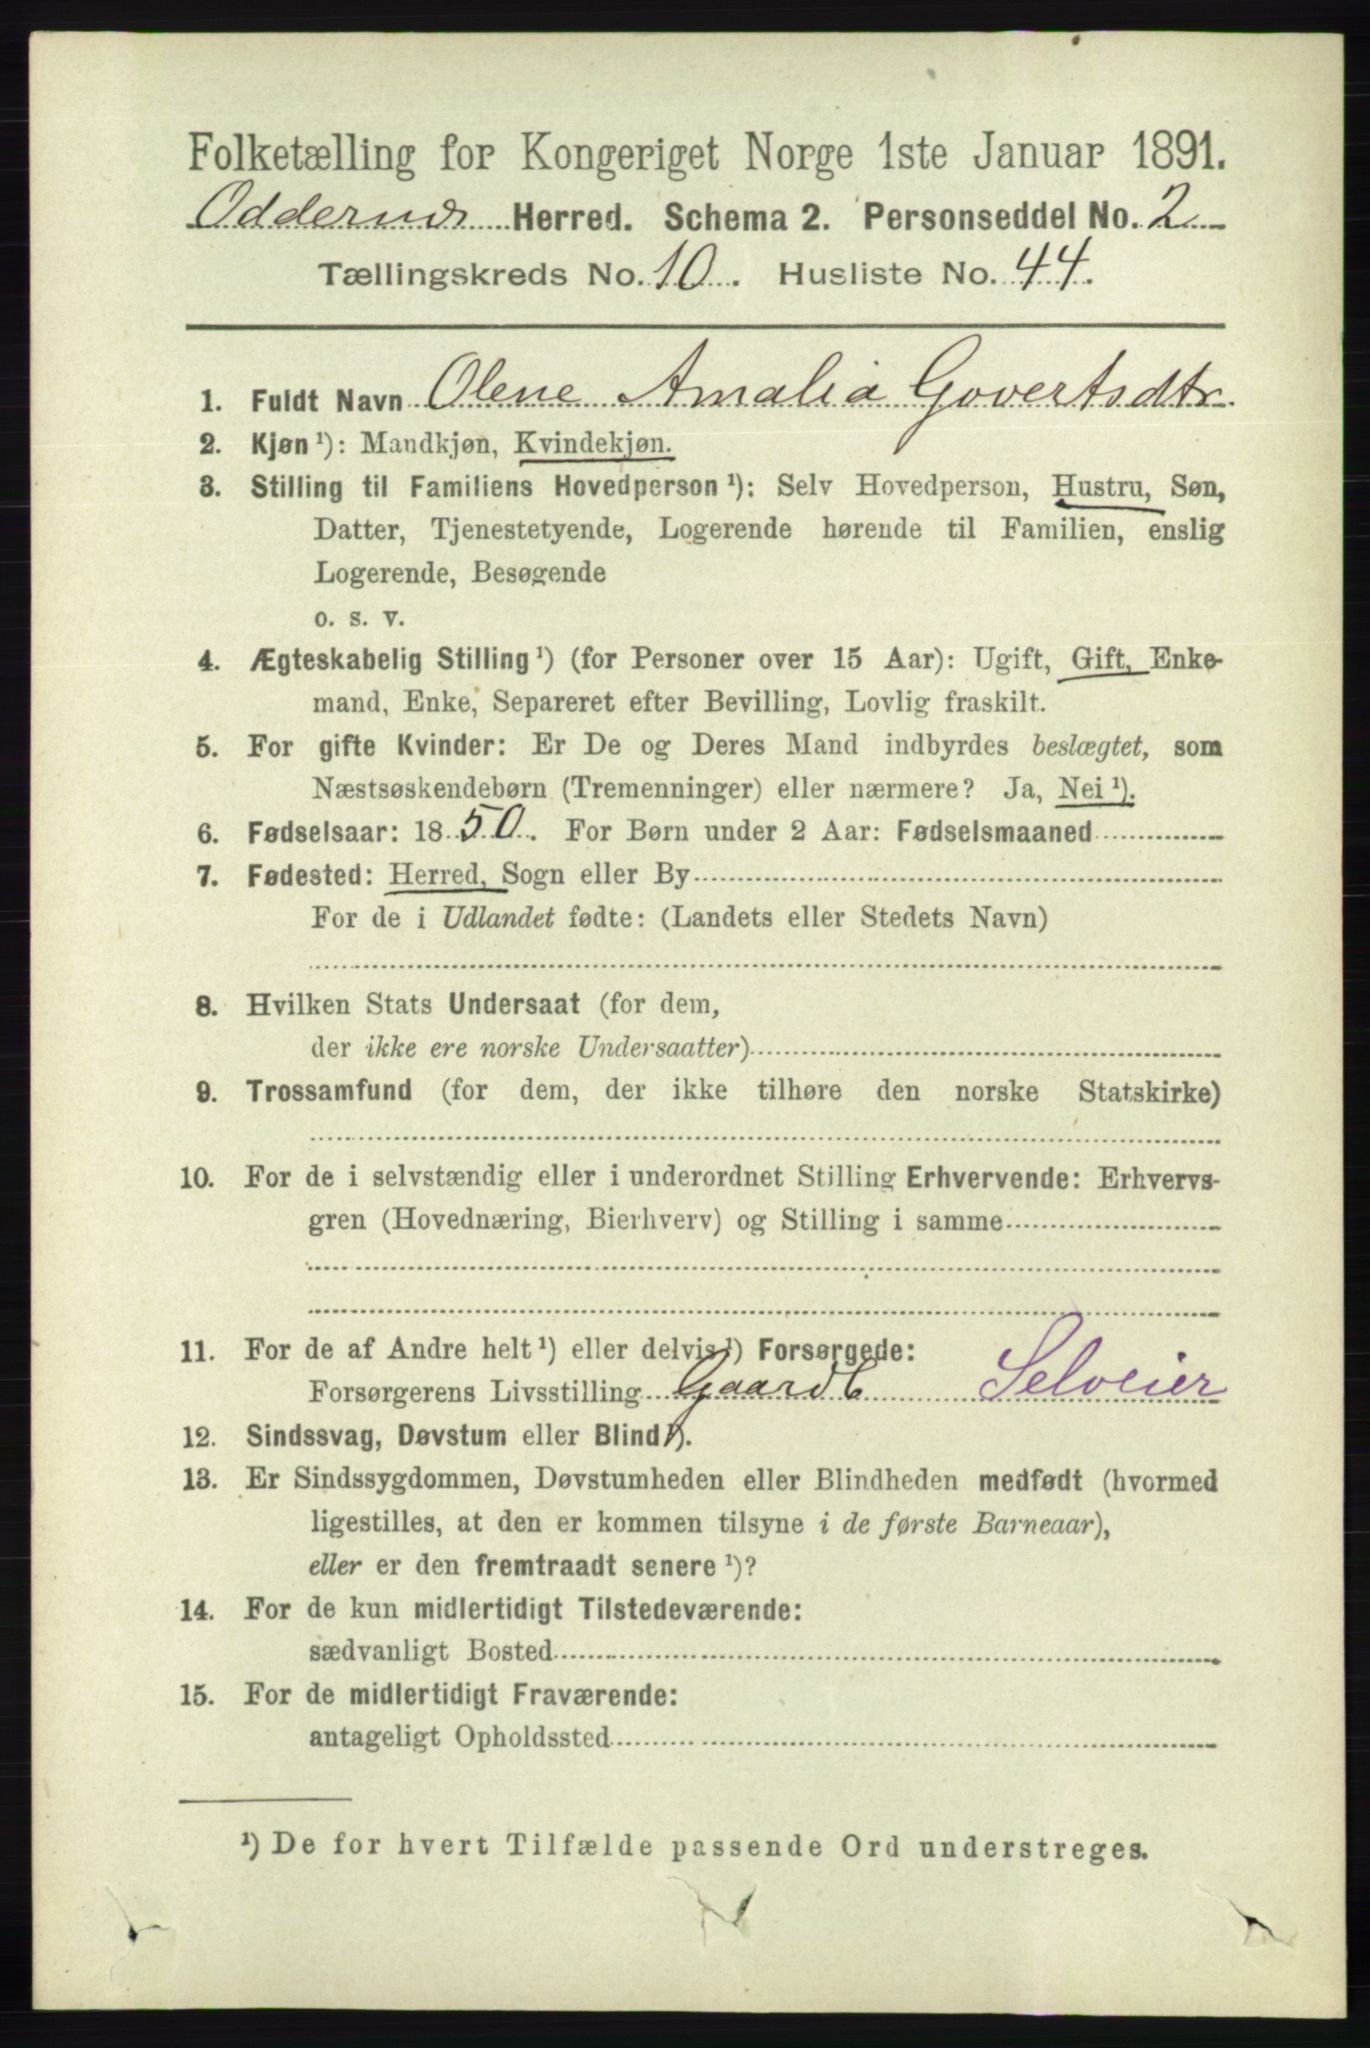 Folketælling for Kongeriget Norge 1ste Januar 1891.
Oddernes Herred. Schema 2. Personseddel No. 2
Tællingskreds No. 10. Husliste No. 44.
1. Fuldt Navn Olene Amalia Govertsdtr.
2. Kjøn ¹): Mandkjøn, Kvindekjøn.
3. Stilling til Familiens Hovedperson ¹): Selv Hovedperson, Hustru, Søn,
Datter, Tjenestetyende, Logerende hørende til Familien, enslig
Logerende, Besøgende
o. s. v.
4. Ægteskabelig Stilling ¹) (for Personer over 15 Aar): Ugift, Gift, Enke-
mand, Enke, Separeret efter Bevilling, Lovlig fraskilt.
5. For gifte Kvinder: Er De og Deres Mand indbyrdes beslægtet, som
Næstsøskendebørn (Tremenninger) eller nærmere? Ja, Nei ¹).
6. Fødselsaar: 1850. For Børn under 2 Aar: Fødselsmaaned
7. Fødested: Herred, Sogn eller By
For de i Udlandet fødte: (Landets eller Stedets Navn)
8. Hvilken Stats Undersaat (for dem,
der ikke ere norske Undersaatter)
9. Trossamfund (for dem, der ikke tilhøre den norske Statskirke)
10. For de i selvstændig eller i underordnet Stilling Erhvervende: Erhvervs-
gren (Hovednæring, Bierhverv) og Stilling i samme
11. For de af Andre helt ¹) eller delvis ¹) Forsørgede:
Forsørgerens Livsstilling Gaardb Selveier
12. Sindssvag, Døvstum eller Blind ¹).
13. Er Sindssygdommen, Døvstumheden eller Blindheden medfødt (hvormed
ligestilles, at den er kommen tilsyne i de første Barneaar),
eller er den fremtraadt senere ¹)?
14. For de kun midlertidigt Tilstedeværende:
sædvanligt Bosted
15. For de midlertidigt Fraværende:
antageligt Opholdssted
¹) De for hvert Tilfælde passende Ord understreges.